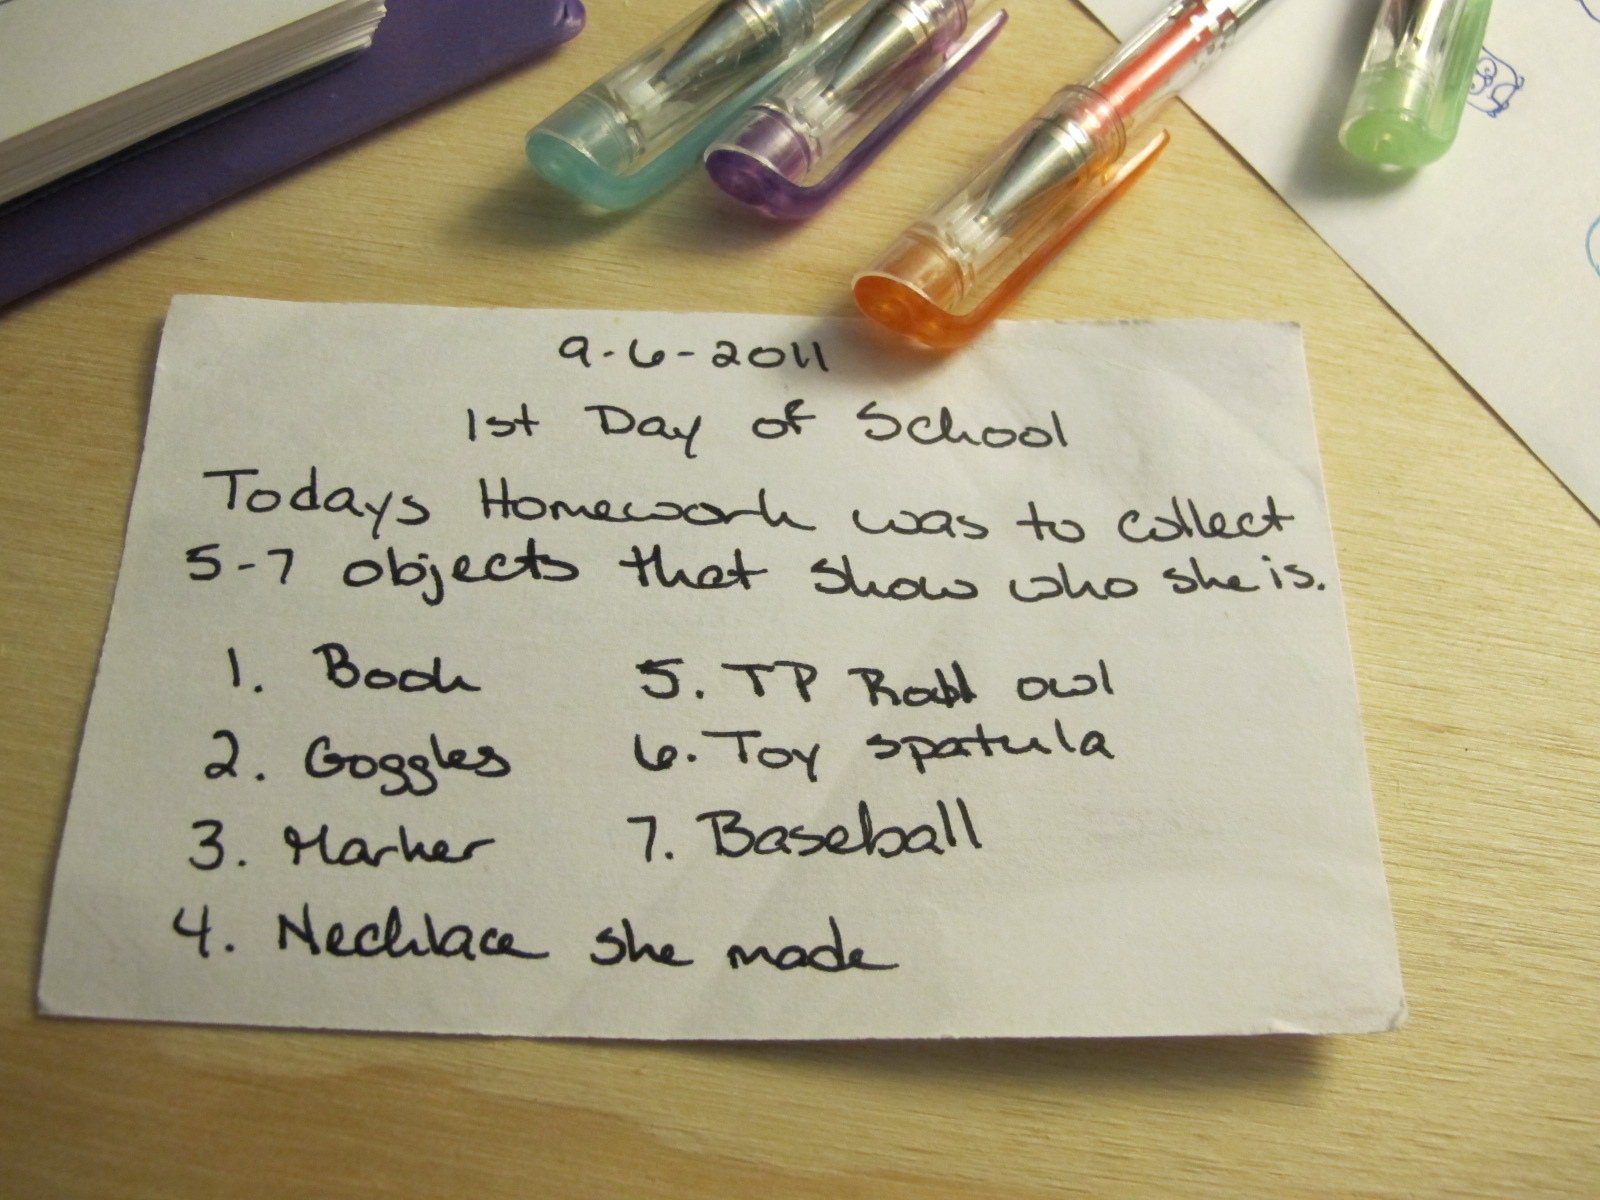 9-6-2011
1st Day of School
Todays Homework was to collect
5-7 objects that show who she is.
1. Book
2. Goggles
3. Marker
4. Necklace she made
5. TP Roll owl
6. Toy spatula
7. Baseball